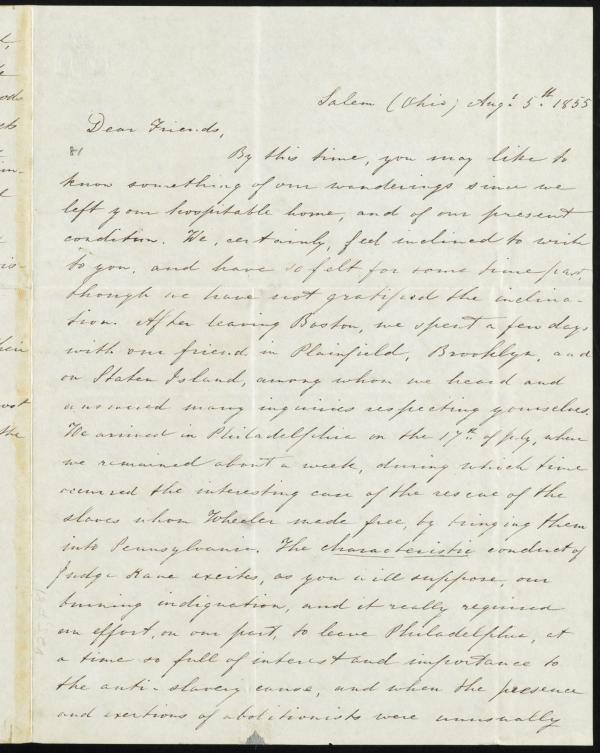 Salem (Ohio) Augt. 5th. 1855
Dear Friends,
81
By this time, you may like to
know something of our wanderings since we
left your hospitable home, and of our present
condition. We, certainly, feel inclined to write
to you, and have so felt for some time past,
though we have not gratified the inclina-
tion. After leaving Boston, we spent a few days
with our friends in Plainfield, Brooklyn, and
on Staten Island, among whom we heard and
answered many inquiries respecting yourselves.
We arrived in Philadelphia on the 17th. of July, where
we remained about a week, during which time
occurred the interesting case of the rescue of the
slaves whom Wheeler made free, by bringing them
into Pennsylvania. The characteristic conduct of
Judge Kane excites, as you will suppose, our
burning indignation, and it really required
an effort, on our part, to leave Philadelphia, at
a time so full of interest and importance to
the anti-slavery cause, and when the presence
and exertions of abolitionists were unusually